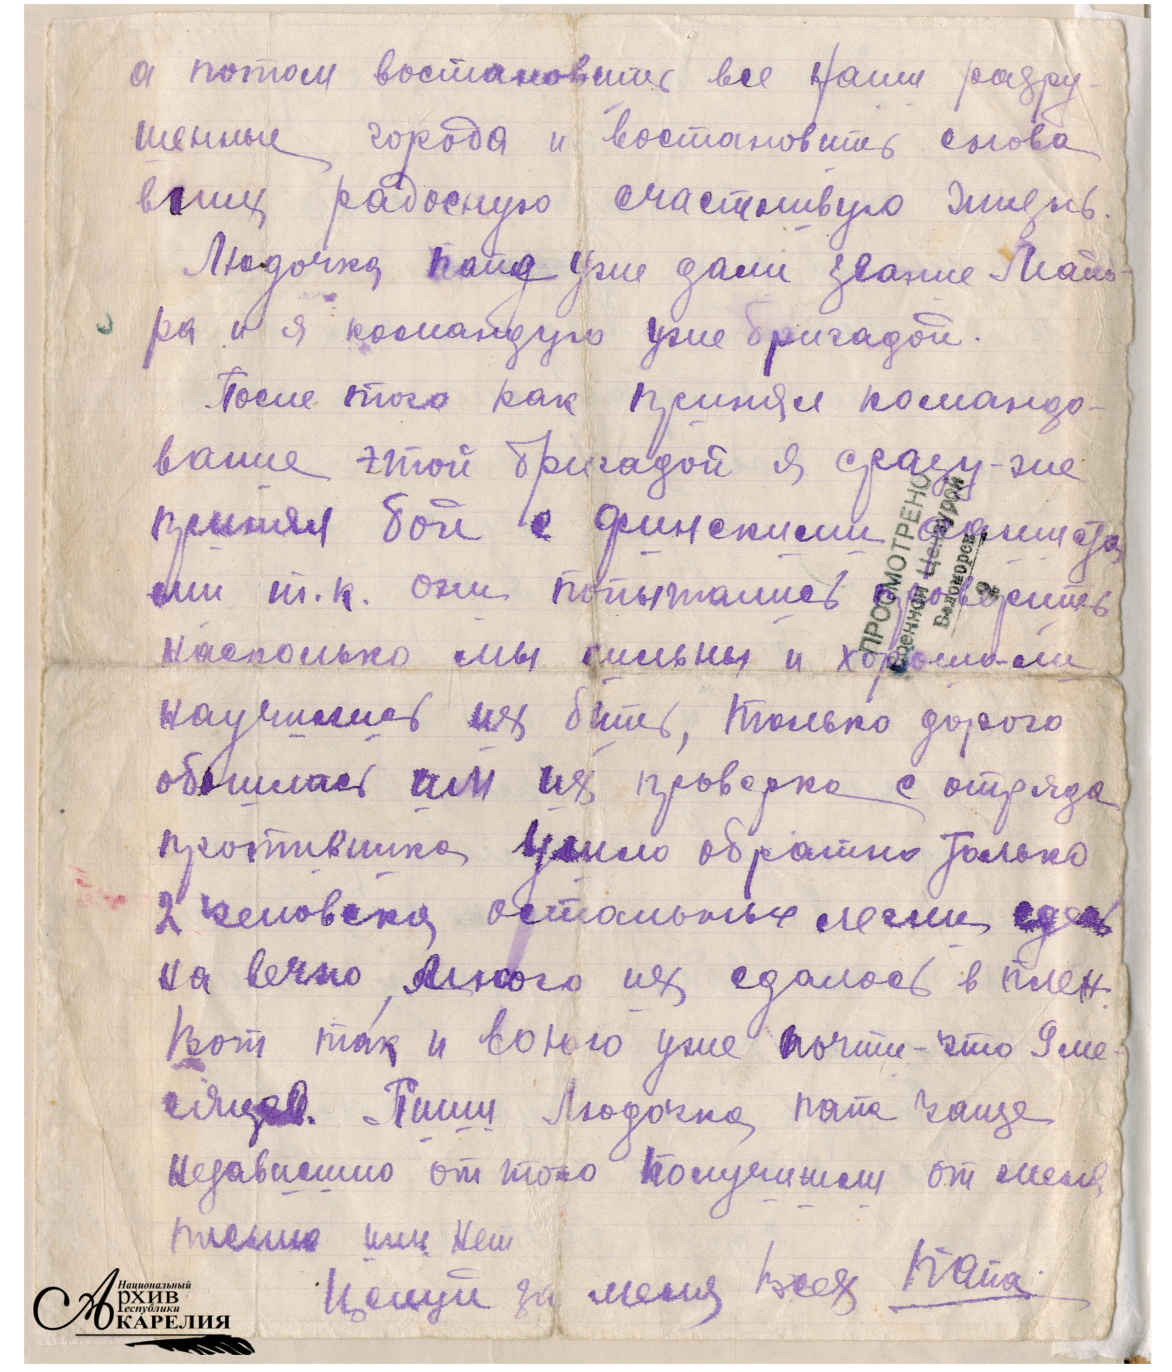 а потом востановить все наши разру-
шенные города и востановить снова
вашу радосную счастливую жизнь.
Людочка папа уже дали звание Майо-
ра и я командую уже бригадой.
После того как принял командо-
вание этой бригадой я сразу-же
принял бой с финскими фашиста
ми т.к. они попытались проверить
насколько мы сильны и хорошо-ли
научились их бить, только дорого
обошлась им их проверка с отряда
противника ушло обратно только
2 человека, остальные легли здесь
на вечно, много их сдалось в плен.
Вот так и воюю уже почти-что 9 ме-
сяцев. Пиши Людочка папе чаще
независимо от того получили от меня
письмо или нет
Целуй за меня Всех Папа.
ПРОСМОТРЕНО
Военной Цензурой
Беломорск
Национальный
АРХИВ
Республики
КАРЕЛИЯ